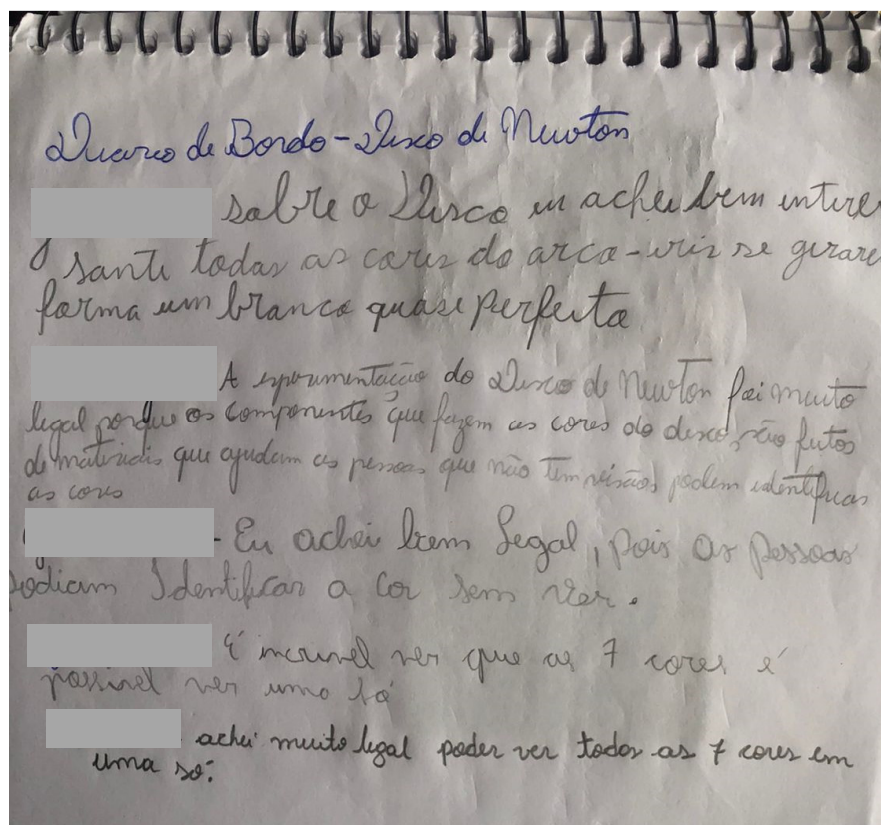 Diario de Bordo - Disco de Newton
sobre o Disco eu achei bem intere
sante todas as cores do arco-iris se girare
forma um branco quase perfeito
A experimentacão do Disco de Newton foi muito
legal porque os componentes que fazem as cores do disco, são feitos
de materiais que ajudam as pessoas que não tem visão, podem identificas
as cores
- Eu achei bem legal, pois as pessoas
podiam Identificar a cor sem ver.
É incrivel ver que as 7 cores é
possivel ver uma só
achei muito legal poder ver todas as 7 cores em
uma só.